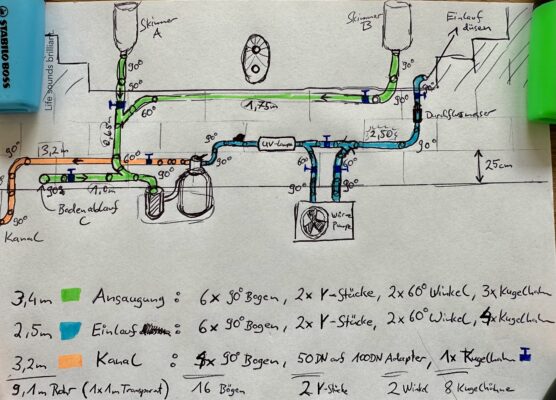 STABILO BOSS
Life sounds brilliant.
Skimmer
A
Skimmer
B
Einlauf
düsen
90°
90°
90°
90°
90°
60°
1,75m
Durchflussmesser
0,65m
60°
2,50m
90°
3,2m
90°
90°
UV-Lampe
90°
90°
1,0m
90°
25cm
Bodenablauf
C
90°
Kanal
Wärme
Pumpe
3,4m Ansaugung : 6x 90° Bogen, 2x Y-Stücke, 2x 60° Winkel, 3x Kugelhahn
2,5m Einlauf : 6x 90° Bogen, 2x Y-Stücke, 2x 60° Winkel, 4x Kugelhahn
3,2m Kanal : 4x 90° Bogen, 50DN auf 100DN Adapter, 1x Kugelhahn
9,1m Rohr (1x1m Transparent) 16 Bögen 2 Y-Stücke 2 Winkel 8 Kugelhähne